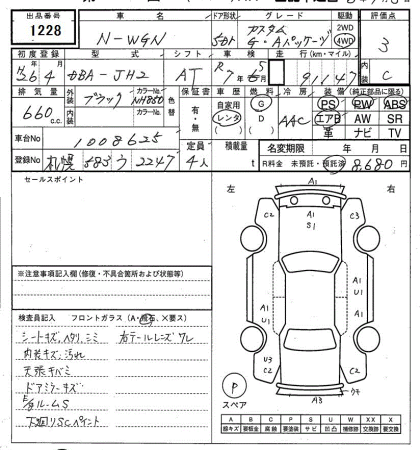 出品番号 車名 ドア形状 グレード 駆動 評価点
1228 N-WGN 5DH カスタム G・Aパッケージ 2WD 4WD 3
初度登録 型式 シフト 車検 走行(km・マイル) 内装
26年4月 DBA-JH2 AT R7年5月 91147 C
排気量 外装 ブラック カラーNo NH850 色替 保証書 車歴 燃料 冷房 装備(純正部品に限る)
660c.c. 内装 カラーNo 有・無 自家用 レンタ G D AAC PS PW ABS
エアB AW SR
革 ナビ TV
車台No 1008625 定員 積載量 名変期限 年 月 日
登録No 札幌 583 ウ 2247 4人 t R料金 未預託・預託済 8,680円
セールスポイント
左 右
A1
C2 A1 S1 C3
A1
A1 U1
A1 U1
U3 C2 C2
A3 ウキ
P
スペア
※注意事項記入欄(修復・不具合箇所および状態等)
検査員記入 フロントガラス(A・飛石、×要ス)
シートキズ、ヘタリ、シミ 右テールレンズワレ
内装キズ、汚れ
天張キバミ
ドアミラーキズ
F/ガラスS
下廻りSCペイント
A B C P S U W XX X
線キズ 要鈑金 腐蝕 要塗装 サビ 凹凸 補修跡 交換跡 要交換